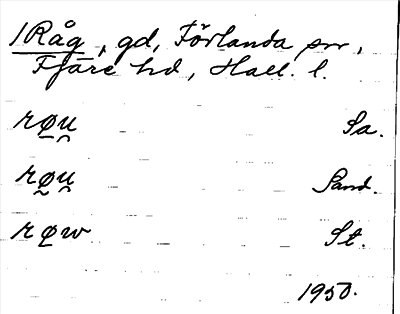 1 Råg, gd, Förlanda sn,
Fjäre hd, Hall. l.
rø̲u̯ Sa.
rø̰u̯ Sand.
rø̲w St.
1950.